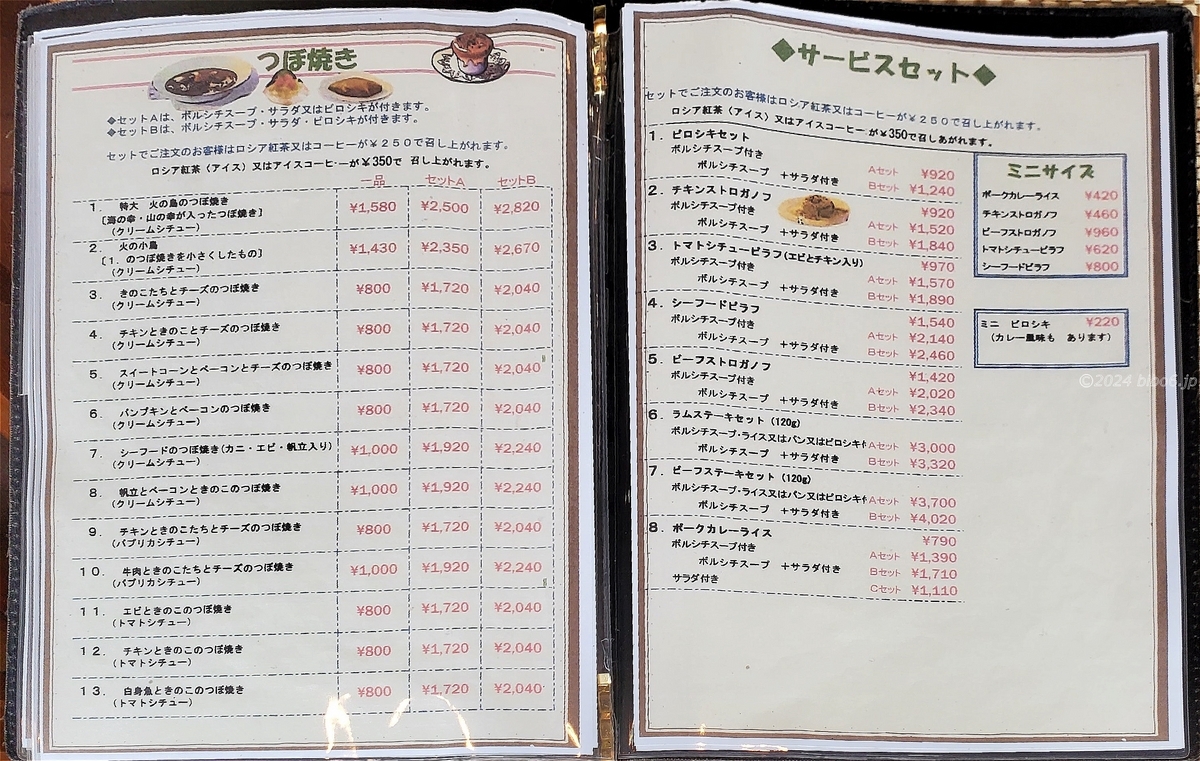 つぼ焼き
◆セットAは、ボルシチスープ・サラダ又はピロシキが付きます。
◆セットBは、ボルシチスープ・サラダ・ピロシキが付きます。
セットでご注文のお客様はロシア紅茶又はコーヒーが¥250で召し上がれます。
ロシア紅茶(アイス)又はアイスコーヒーが¥350で 召し上がれます。
一品 セットA セットB
1. 特大 火の鳥のつぼ焼き ¥1,580 ¥2,500 ¥2,820
[海の幸・山の幸が入ったつぼ焼き]
(クリームシチュー)
2. 火の小鳥 ¥1,430 ¥2,350 ¥2,670
[1. のつぼ焼きを小さくしたもの]
(クリームシチュー)
3. きのこたちとチーズのつぼ焼き ¥800 ¥1,720 ¥2,040
(クリームシチュー)
4. チキンときのことチーズのつぼ焼き ¥800 ¥1,720 ¥2,040
(クリームシチュー)
5. スイートコーンとベーコンとチーズのつぼ焼き ¥800 ¥1,720 ¥2,040
(クリームシチュー)
6. パンプキンとベーコンのつぼ焼き ¥800 ¥1,720 ¥2,040
(クリームシチュー)
7. シーフードのつぼ焼き(カニ・エビ・帆立入り) ¥1,000 ¥1,920 ¥2,240
(クリームシチュー)
8. 帆立とベーコンときのこのつぼ焼き ¥1,000 ¥1,920 ¥2,240
(クリームシチュー)
9. チキンときのこたちとチーズのつぼ焼き ¥800 ¥1,720 ¥2,040
(パプリカシチュー)
10. 牛肉ときのこたちとチーズのつぼ焼き ¥1,000 ¥1,920 ¥2,240
(パプリカシチュー)
11. エビときのこのつぼ焼き ¥800 ¥1,720 ¥2,040
(トマトシチュー)
12. チキンときのこのつぼ焼き ¥800 ¥1,720 ¥2,040
(トマトシチュー)
13. 白身魚ときのこのつぼ焼き ¥800 ¥1,720 ¥2,040
(トマトシチュー)
◆サービスセット◆
セットでご注文のお客様はロシア紅茶又はコーヒーが¥250で召し上がれます。
ロシア紅茶(アイス)又はアイスコーヒーが¥350で召しあがれます。
1. ピロシキセット
ボルシチスープ付き Aセット ¥920
ボルシチスープ +サラダ付き Bセット ¥1,240
2. チキンストロガノフ ¥920
ボルシチスープ付き Aセット ¥1,520
ボルシチスープ +サラダ付き Bセット ¥1,840
3. トマトシチューピラフ(エビとチキン入り) ¥970
ボルシチスープ付き Aセット ¥1,570
ボルシチスープ +サラダ付き Bセット ¥1,890
4. シーフードピラフ ¥1,540
ボルシチスープ付き Aセット ¥2,140
ボルシチスープ +サラダ付き Bセット ¥2,460
5. ビーフストロガノフ ¥1,420
ボルシチスープ付き Aセット ¥2,020
ボルシチスープ +サラダ付き Bセット ¥2,340
6. ラムステーキセット (120g)
ボルシチスープ・ライス又はパン又はピロシキ付 Aセット ¥3,000
ボルシチスープ +サラダ付き Bセット ¥3,320
7. ビーフステーキセット (120g)
ボルシチスープ・ライス又はパン又はピロシキ付 Aセット ¥3,700
ボルシチスープ +サラダ付き Bセット ¥4,020
8. ポークカレーライス ¥790
ボルシチスープ付き Aセット ¥1,390
ボルシチスープ +サラダ付き Bセット ¥1,710
サラダ付き Cセット ¥1,110
ミニサイズ
ポークカレーライス ¥420
チキンストロガノフ ¥460
ビーフストロガノフ ¥960
トマトシチューピラフ ¥620
シーフードピラフ ¥800
ミニ ピロシキ ¥220
(カレー風味も あります)
©2024 bloo6.jp